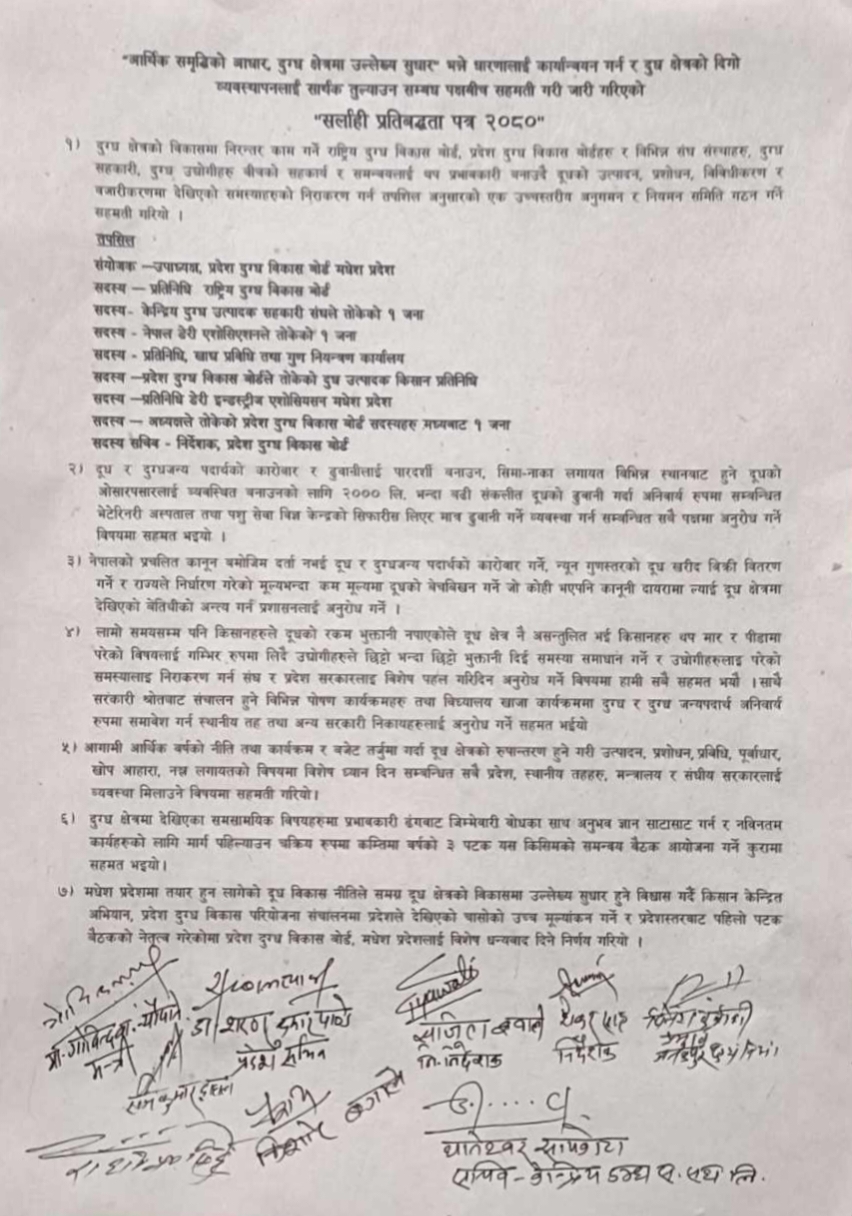 "आर्थिक समृद्धिको आधार, दुग्ध क्षेत्रमा उल्लेख्य सुधार" भन्ने धारणालाई कार्यान्वयन गर्न र दुध क्षेत्रको दिगो
व्यवस्थापनलाई सार्थक तुल्याउन सम्बध पक्षबीच सहमती गरी जारी गरिएको
"सर्लाही प्रतिबद्धता पत्र २०८०"
१) दुग्ध क्षेत्रको विकासमा निरन्तर काम गर्ने राष्ट्रिय दुग्ध विकास बोर्ड, प्रदेश दुग्ध विकास बोर्डहरु र विभिन्न संघ संस्थाहरु, दुग्ध
सहकारी, दुग्ध उद्योगीहरु बीचको सहकार्य र समन्वयलाई थप प्रभावकारी बनाउदै दूधको उत्पादन, प्रशोधन, विविधीकरण र
बजारीकरणमा देखिएको समस्याहरुको निराकरण गर्न तपशिल अनुसारको एक उच्चस्तरीय अनुगमन र नियमन समिति गठन गर्ने
सहमती गरियो ।
तपसिल
संयोजक –उपाध्यक्ष, प्रदेश दुग्ध विकास बोर्ड मधेश प्रदेश
सदस्य – प्रतिनिधि राष्ट्रिय दुग्ध विकास बोर्ड
सदस्य- केन्द्रिय दुग्ध उत्पादक सहकारी संघले तोकेको १ जना
सदस्य - नेपाल डेरी एशोसिएशनले तोकेको १ जना
सदस्य - प्रतिनिधि, खाद्य प्रविधि तथा गुण नियन्त्रण कार्यालय
सदस्य –प्रदेश दुग्ध विकास बोर्डले तोकेको दुध उत्पादक किसान प्रतिनिधि
सदस्य –प्रतिनिधि डेरी इन्डस्ट्रीज एशोसियसन मधेश प्रदेश
सदस्य – अध्यक्षले तोकेको प्रदेश दुग्ध विकास बोर्ड सदस्यहरु मध्यबाट १ जना
सदस्य सचिव - निर्देशक, प्रदेश दुग्ध विकास बोर्ड
२) दूध र दुग्धजन्य पदार्थको कारोबार र ढुवानीलाई पारदर्शी बनाउन, सिमा-नाका लगायत विभिन्न स्थानबाट हुने दूधको
ओसारपसारलाई व्यवस्थित बनाउनको लागि २००० लि. भन्दा बढी संकलीत दूधको ढुवानी गर्दा अनिवार्य रुपमा सम्बन्धित
भेटेरिनरी अस्पताल तथा पशु सेवा विज्ञ केन्द्रको सिफारीस लिएर मात्र ढुवानी गर्ने व्यवस्था गर्न सम्बन्धित सबै पक्षमा अनुरोध गर्ने
विषयमा सहमत भइयो ।
३) नेपालको प्रचलित कानून बमोजिम दर्ता नभई दूध र दुग्धजन्य पदार्थको कारोबार गर्ने, न्यून गुणस्तरको दूध खरीद बिक्री वितरण
गर्ने र राज्यले निर्धारण गरेको मूल्यभन्दा कम मूल्यमा दूधको बेचबिखन गर्ने जो कोही भएपनि कानूनी दायरामा ल्याई दूध क्षेत्रमा
देखिएको बेतिथीको अन्त्य गर्न प्रशासनलाई अनुरोध गर्ने ।
४) लामो समयसम्म पनि किसानहरुले दूधको रकम भुक्तानी नपाएकोले दूध क्षेत्र नै असन्तुलित भई किसानहरु थप मार र पीडामा
परेको विषयलाई गम्भिर रुपमा लिदै उद्योगीहरुले छिट्टो भन्दा छिट्टो भुक्तानी दिई समस्या समाधान गर्ने र उद्योगीहरुलाइ परेको
समस्यालाइ निराकरण गर्न संघ र प्रदेश सरकारलाइ विशेष पहल गरिदिन अनुरोध गर्ने विषयमा हामी सबै सहमत भयौ । साथै
सरकारी श्रोतबाट संचालन हुने विभिन्न पोषण कार्यक्रमहरु तथा विध्यालय खाजा कार्यक्रममा दुग्ध र दुग्ध जन्यपदार्थ अनिवार्य
रुपमा समावेश गर्न स्थानीय तह तथा अन्य सरकारी निकायहरुलाई अनुरोध गर्ने सहमत भईयो
५) आगामी आर्थिक बर्षको नीति तथा कार्यक्रम र बजेट तर्जुमा गर्दा दूध क्षेत्रको रुपान्तरण हुने गरी उत्पादन, प्रशोधन, प्रविधि, पूर्वाधार,
खोप आहारा, नश्ल लगायतको विषयमा विशेष ध्यान दिन सम्बन्धित सबै प्रदेश, स्थानीय तहहरु, मन्त्रालय र संघीय सरकारलाई
व्यवस्था मिलाउने विषयमा सहमती गरियो।
६) दुग्ध क्षेत्रमा देखिएका समसामयिक विषयहरुमा प्रभावकारी ढंगबाट जिम्मेवारी बोधका साथ अनुभव ज्ञान साटासाट गर्न र नविनतम
कार्यहरुको लागि मार्ग पहिल्याउन चक्रिय रुपमा कम्तिमा बर्षको ३ पटक यस किसिमको समन्वय बैठक आयोजना गर्ने कुरामा
सहमत भइयो।
७) मधेश प्रदेशमा तयार हुन लागेको दूध विकास नीतिले समग्र दूध क्षेत्रको विकासमा उल्लेख्य सुधार हुने विश्वास गर्दै किसान केन्द्रित
अभियान, प्रदेश दुग्ध विकास परियोजना संचालनमा प्रदेशले देखिएको चासोको उच्च मूल्यांकन गर्ने र प्रदेशस्तरबाट पहिलो पटक
बैठकको नेतृत्व गरेकोमा प्रदेश दुग्ध विकास बोर्ड, मधेश प्रदेशलाई विशेष धन्यवाद दिने निर्णय गरियो ।
मन्त्री
प्रदेश सचिव
निर्देशक